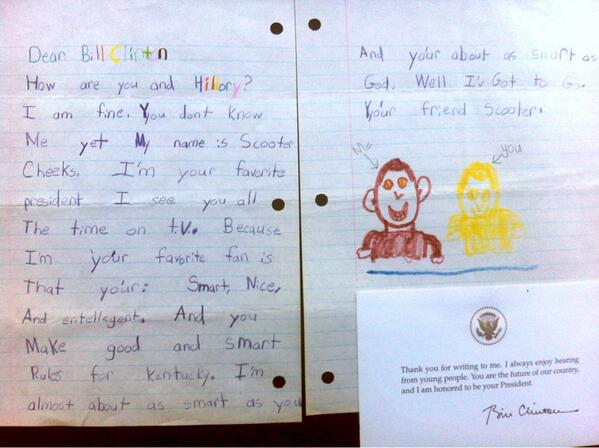 Dear Bill Clinton
How are you and Hillory?
I am fine. You dont know
Me yet My name is Scooter
Cheeks. I'm your favorite
president I see you all
The time on t.v. Because
I'm your favorite fan is
That your: Smart, Nice,
And entellegent. And you
Make good and smart
Rules for Kentucky. I'm
almost about as smart as you
And your about as smart as
God. Well I'v Got to Go.
Your friend Scooter.
Me
you
Thank you for writing to me. I always enjoy hearing
from young people. You are the future of our country,
and I am honored to be your President.
Bill Clinton